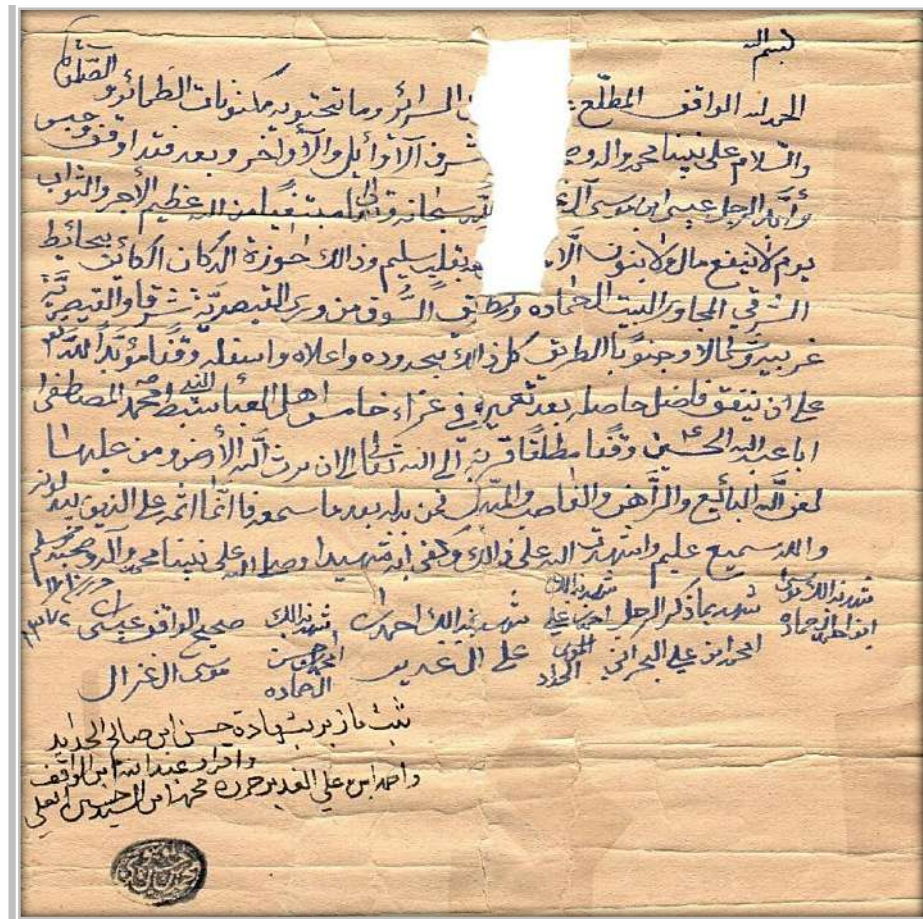 بسم الله
الحمد لله الواقف المطلع السرائر وما تحتويه مكنونات الضمائر والصلاة
والسلام على نبينا محمد واله وصحبه شرف الاوائل والأواخر وبعد فقد أوقف وحبس
وأبد الرجل عيسى ابن موسى آل لله سبحانه وتعالى مبتغيًا من الله عظيم الأجر والثواب
يوم لا ينفع مال ولا بنون الا بقلب سليم وذالك حوزة الدكان الكائن بحائط
الشرقي المجاور البيت الحماده وطريق السوق من ورى القيصرية شرقا والقيصرية
غربيه وشمالا وجنوبًا الطريق كل ذالك بحدوده واعلاه واسفله وقفًا مؤبدًا لله
على ان ينفق فاضل حاصله بعد تعميره في عزاء خامس اهل العبا سبط النبي محمد المصطفى
ابا عبد الله الحسين وقفًا مطلقًا قربة الى الله تعالى الى ان يرث الله الأرض ومن عليها
لعن الله البائع والراهن والغاصب فمن بدله بعد ما سمعه فانما اثمه على الذين يبدلونه
والله سميع عليم واشهدت الله على ذالك وكفى به شهيدا وصلى الله على نبينا محمد وآله وصحبه وسلم
١٣٧٢
شهد بذالك موسى ابن الحماده
شهد بما ذكر الرجل احمد ابن علي البحراني
شهد بذالك احمد ابن علي الحداد
شهد بذالك احمد ابن علي الغدير
شهد بذالك ابن حسن الحماده
صحيح الواقف عيسى ابن موسى الغزال
ثبت ما زبر بشهادة حسن ابن صالح الحدايد
واقرار عبد الله ابن الواقف
واحمد ابن علي الغدير حرره محمد ابن السيد حسين العلي